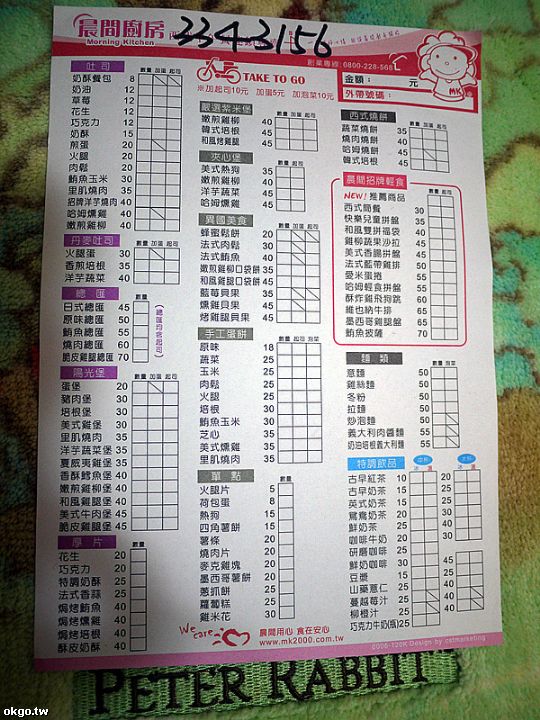 晨間廚房
Morning Kitchen
3343156
創業專線:0800-228-568
TAKE TO GO
※加起司10元 加蛋5元 加泡菜10元
金額: 元
外帶號碼:
MK
吐司 數量 加蛋 起司
奶酥餐包 8
奶油 12
草莓 12
花生 12
巧克力 12
奶酥 15
煎蛋 20
火腿 20
肉鬆 20
鮪魚玉米 30
里肌燒肉 35
招牌洋芋燒肉 40
哈姆燻雞 40
嫩煎雞柳 40
丹麥吐司 數量 加蛋 起司
火腿蛋 30
香煎培根 35
洋芋蔬菜 40
總匯 數量
日式總匯 45
原味總匯 50
鮪魚總匯 55
燒肉總匯 60
脆皮雞腿總匯 70
(總匯均含起司)
陽光堡 數量 加蛋 起司
蛋堡 20
豬肉堡 30
培根堡 30
美式雞堡 30
里肌燒肉 35
洋芋蔬菜堡 35
夏威夷雞堡 35
香酥鱈魚堡 35
嫩煎雞柳堡 40
和風雞腿堡 40
美式牛肉堡 45
脆皮雞腿堡 45
厚片 數量
花生 20
巧克力 20
特調奶酥 25
法式香蒜 25
焗烤鮪魚 40
焗烤燻雞 40
焗烤培根 40
酥皮奶酥 40
嚴選紫米堡 數量 加蛋 起司
嫩煎雞柳 40
韓式培根 45
和風烤雞 45
夾心堡 數量 加蛋 起司
美式熱狗 35
嫩煎雞柳 40
洋芋蔬菜 45
哈姆燻雞 45
異國美食 數量 加蛋 起司
蜂蜜鬆餅 20
法式肉鬆 30
法式鮪魚 40
嫩煎雞柳口袋餅 35
和風雞腿口袋餅 45
藍莓貝果 35
燻雞貝果 45
烤雞腿貝果 45
手工蛋餅 數量 起司 泡菜
原味 18
蔬菜 25
玉米 25
肉鬆 25
火腿 25
培根 30
鮪魚玉米 30
芝心 35
美式燻雞 35
里肌燒肉 35
單點 數量
火腿片 5
荷包蛋 8
熱狗 15
四角薯餅 15
薯條 20
燒肉片 20
麥克雞塊 20
墨西哥薯餅 20
蔥抓餅 25
蘿蔔糕 25
雞米花 30
西式燒餅 數量 加蛋 起司
蔬菜燒餅 35
燒肉燒餅 40
哈姆燒餅 45
韓式培根 45
晨間招牌輕食
NEW! 推薦商品 數量
西式簡餐 30
快樂兒童拼盤 35
和風雙拼福袋 40
雞柳蔬果沙拉 45
美式香腸拼盤 45
法式藍帶雞排 50
愛米蛋捲 55
哈姆輕食拼盤 55
酥炸雞飛狗跳 60
維也納牛排 65
墨西哥雞腿盤 65
鮪魚披薩 70
麵類 數量 起司 泡菜
意麵 50
雞絲麵 50
冬粉 50
拉麵 50
炒泡麵 50
義大利肉醬麵 55
奶油培根義大利麵 55
特調飲品
冰 溫 冰 溫
古早紅茶 10 20
古早奶茶 15 25
英式奶茶 15 25
鴛鴦奶茶 20 30
鮮奶茶 20 30
咖啡牛奶 20 30
研磨咖啡 25
鮮奶咖啡 30 45
豆漿 15 25
山藥薏仁 25 40
蔓越莓汁 25 40
柳橙汁 25 40
巧克力牛奶(瓶) 25
We care
晨間用心 食在安心
www.mk2000.com.tw
Design by cstmarketing
PETER RABBIT
okgo.tw